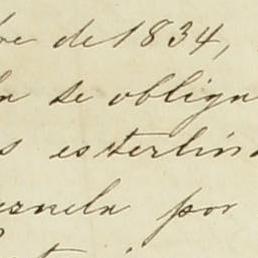 bre de 1834,
se obliga
esterlin
ezuela por